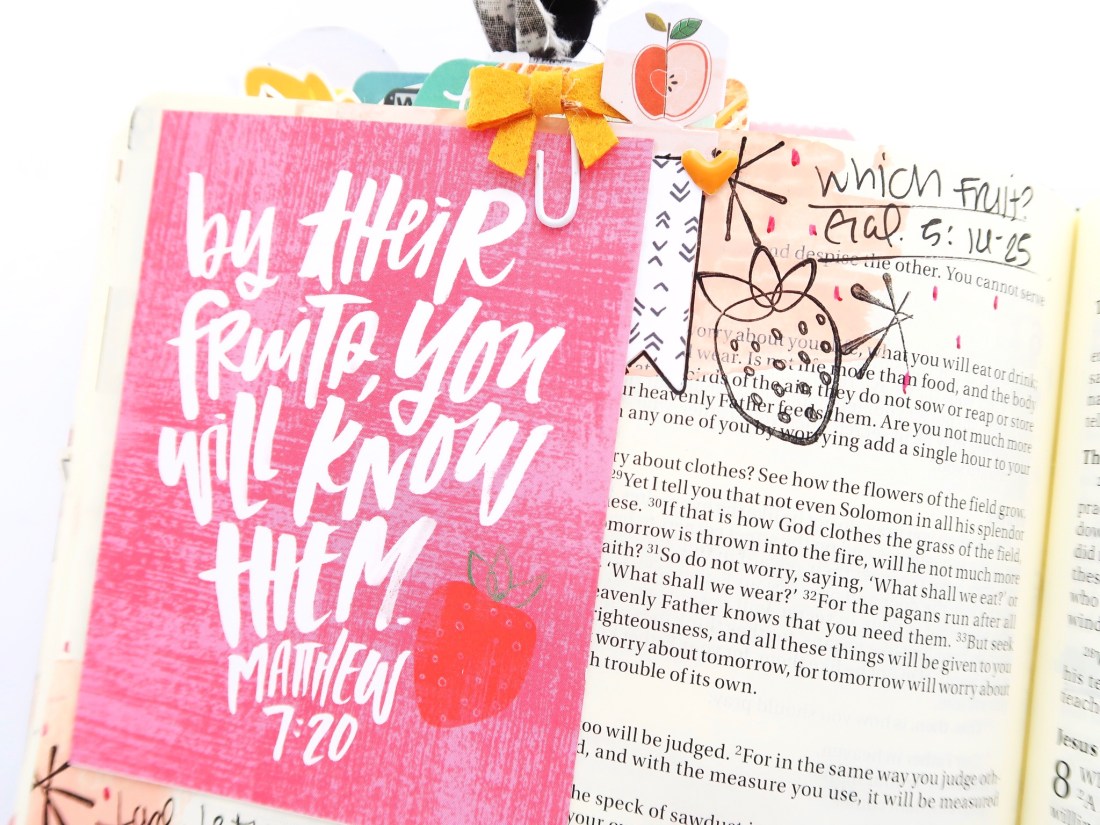 by their
fruits, you
will know
them.
Matthew
7:20
which Fruit?
Gal. 5: 14-25
nd despise the other. You cannot serve
orry about your life, what you will eat or drink;
wear. Is not life more than food, and the body
birds of the air; they do not sow or reap or store
ur heavenly Father feeds them. Are you not much more
any one of you by worrying add a single hour to your
ry about clothes? See how the flowers of the field grow.
29Yet I tell you that not even Solomon in all his splendor
hese. 30If that is how God clothes the grass of the field,
omorrow is thrown into the fire, will he not much more
aith? 31So do not worry, saying, ‘What shall we eat?’ or
‘What shall we wear?’ 32For the pagans run after all
eavenly Father knows that you need them. 33But seek
righteousness, and all these things will be given to you
worry about tomorrow, for tomorrow will worry about
h trouble of its own.
oo will be judged. 2For in the same way you judge oth-
d, and with the measure you use, it will be measured
he speck of sawdust
your
Th
pra
dow
did
thes
who
wind
his te
teach
Jesus
8